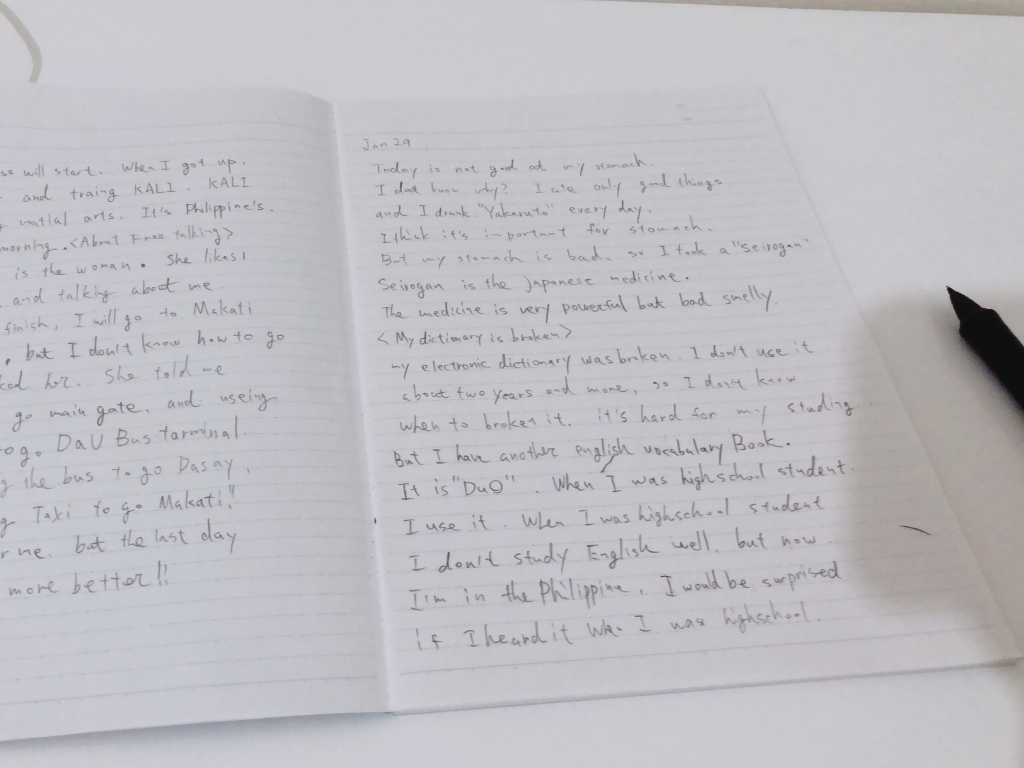 will start. When I got up.
and traing KALI. KALI
matial arts. It's Philippine's.
morning. <About Free talking>
is the woman. She likes
and talking about me
finish, I will go to Makati
but I don't know how to go
ked her. She told me
go main gate. and useing
togo DaU Bus tarminal.
the bus to go Dasay,
Taxi to go Makati!!
me. but the last day
more better!!
Jan 29
Today is not good at my stomach.
I don't know why? I ate only good things.
and I drank "Yakaruto" every day.
I think it's important for stomach.
But my stomach is bad. so I took a "Seirogan"
Seirogan is the Japanese medicine.
The medicine is very powerful but bad smelly.
<My dictionary is broken>
my electronic dictionary was broken. I don't use it
about two years and more, so I don't know
when to broken it. it's hard for my studing.
But I have another english vocabulary Book.
It is "DuO". When I was highschool student.
I use it. When I was highschool student
I don't study English well. but now
I'm in the Philippine. I would be surprised
if I heard it when I was highschool.